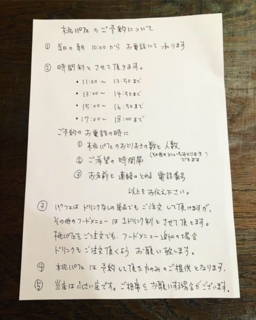 桃パフェのご予約について
① 当日の朝 10:00から お電話にて承ります
② 時間制とさせて頂きます。
・11:00 ～ 12:50まで
・13:00 ～ 14:50まで
・15:00 ～ 16:50まで
・17:00 ～ 18:00まで
ご予約のお電話の時に
① 桃パフェのおとりおきの数と人数
② ご希望の時間帯
③ お名前と連絡のとれる電話番号
以上をお伝え下さい。
③ パフェはドリンクなしの単品でもご注文して頂けますが、
その他のフードメニューは1ドリンク制とさせて頂てます。
桃パフェをご注文でも、フードメニュー追加の場合
ドリンクもご注文頂くよう お願い致します。
④ 桃パフェは予約して頂た方のみのご提供となります。
⑤ 当店は小さい店です。ご相席をお願いする場合がございます。